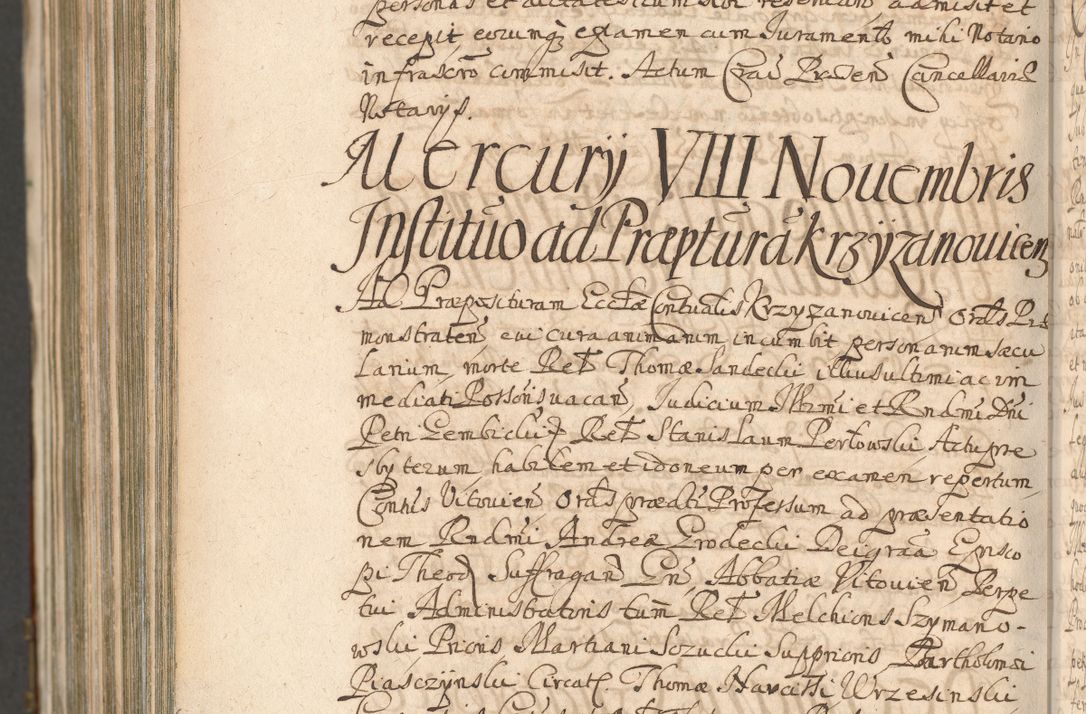 personas et dictates cum sibi reservand admisit et
recepit, eorumq examen cum Juramento mihi Notario
infrascro commisit. Actum Crac Præsen Cancellariæ
Notarijs.
Mercurij VIII Nouembris
Institutio ad Præptura Krzyzanouicen
Ad Præposituram Eccliæ Conventualis Krzyzanouicen Ordis Præ
monstraten cui cura animarum incumbit personarum sæcu
larium, morte Rel Thomæ Sandeckii illius ultimi ac im
mediati Possoris vacan, Judicium Illrmi et Rndmi Dni
Petri Gembickii Rel Stanislaum Perlowski Actu pre
sbyterum habilem et idoneum per examen repertum,
Contus Vitouien Ordis prædti Professum ad præsentatio
nem Rndmi Andreæ Grodeckii Dei graa Episco
pi Theod Suffragan Gn Abbatiæ Vitouien Perpe
tui Administratoris tum Rel Melchioris Szymano-
wskii Prioris Martiani Sozuckii Supprioris Bartholomei
Piasczynskii Circat Thomæ Narcissi Wrzesinskii